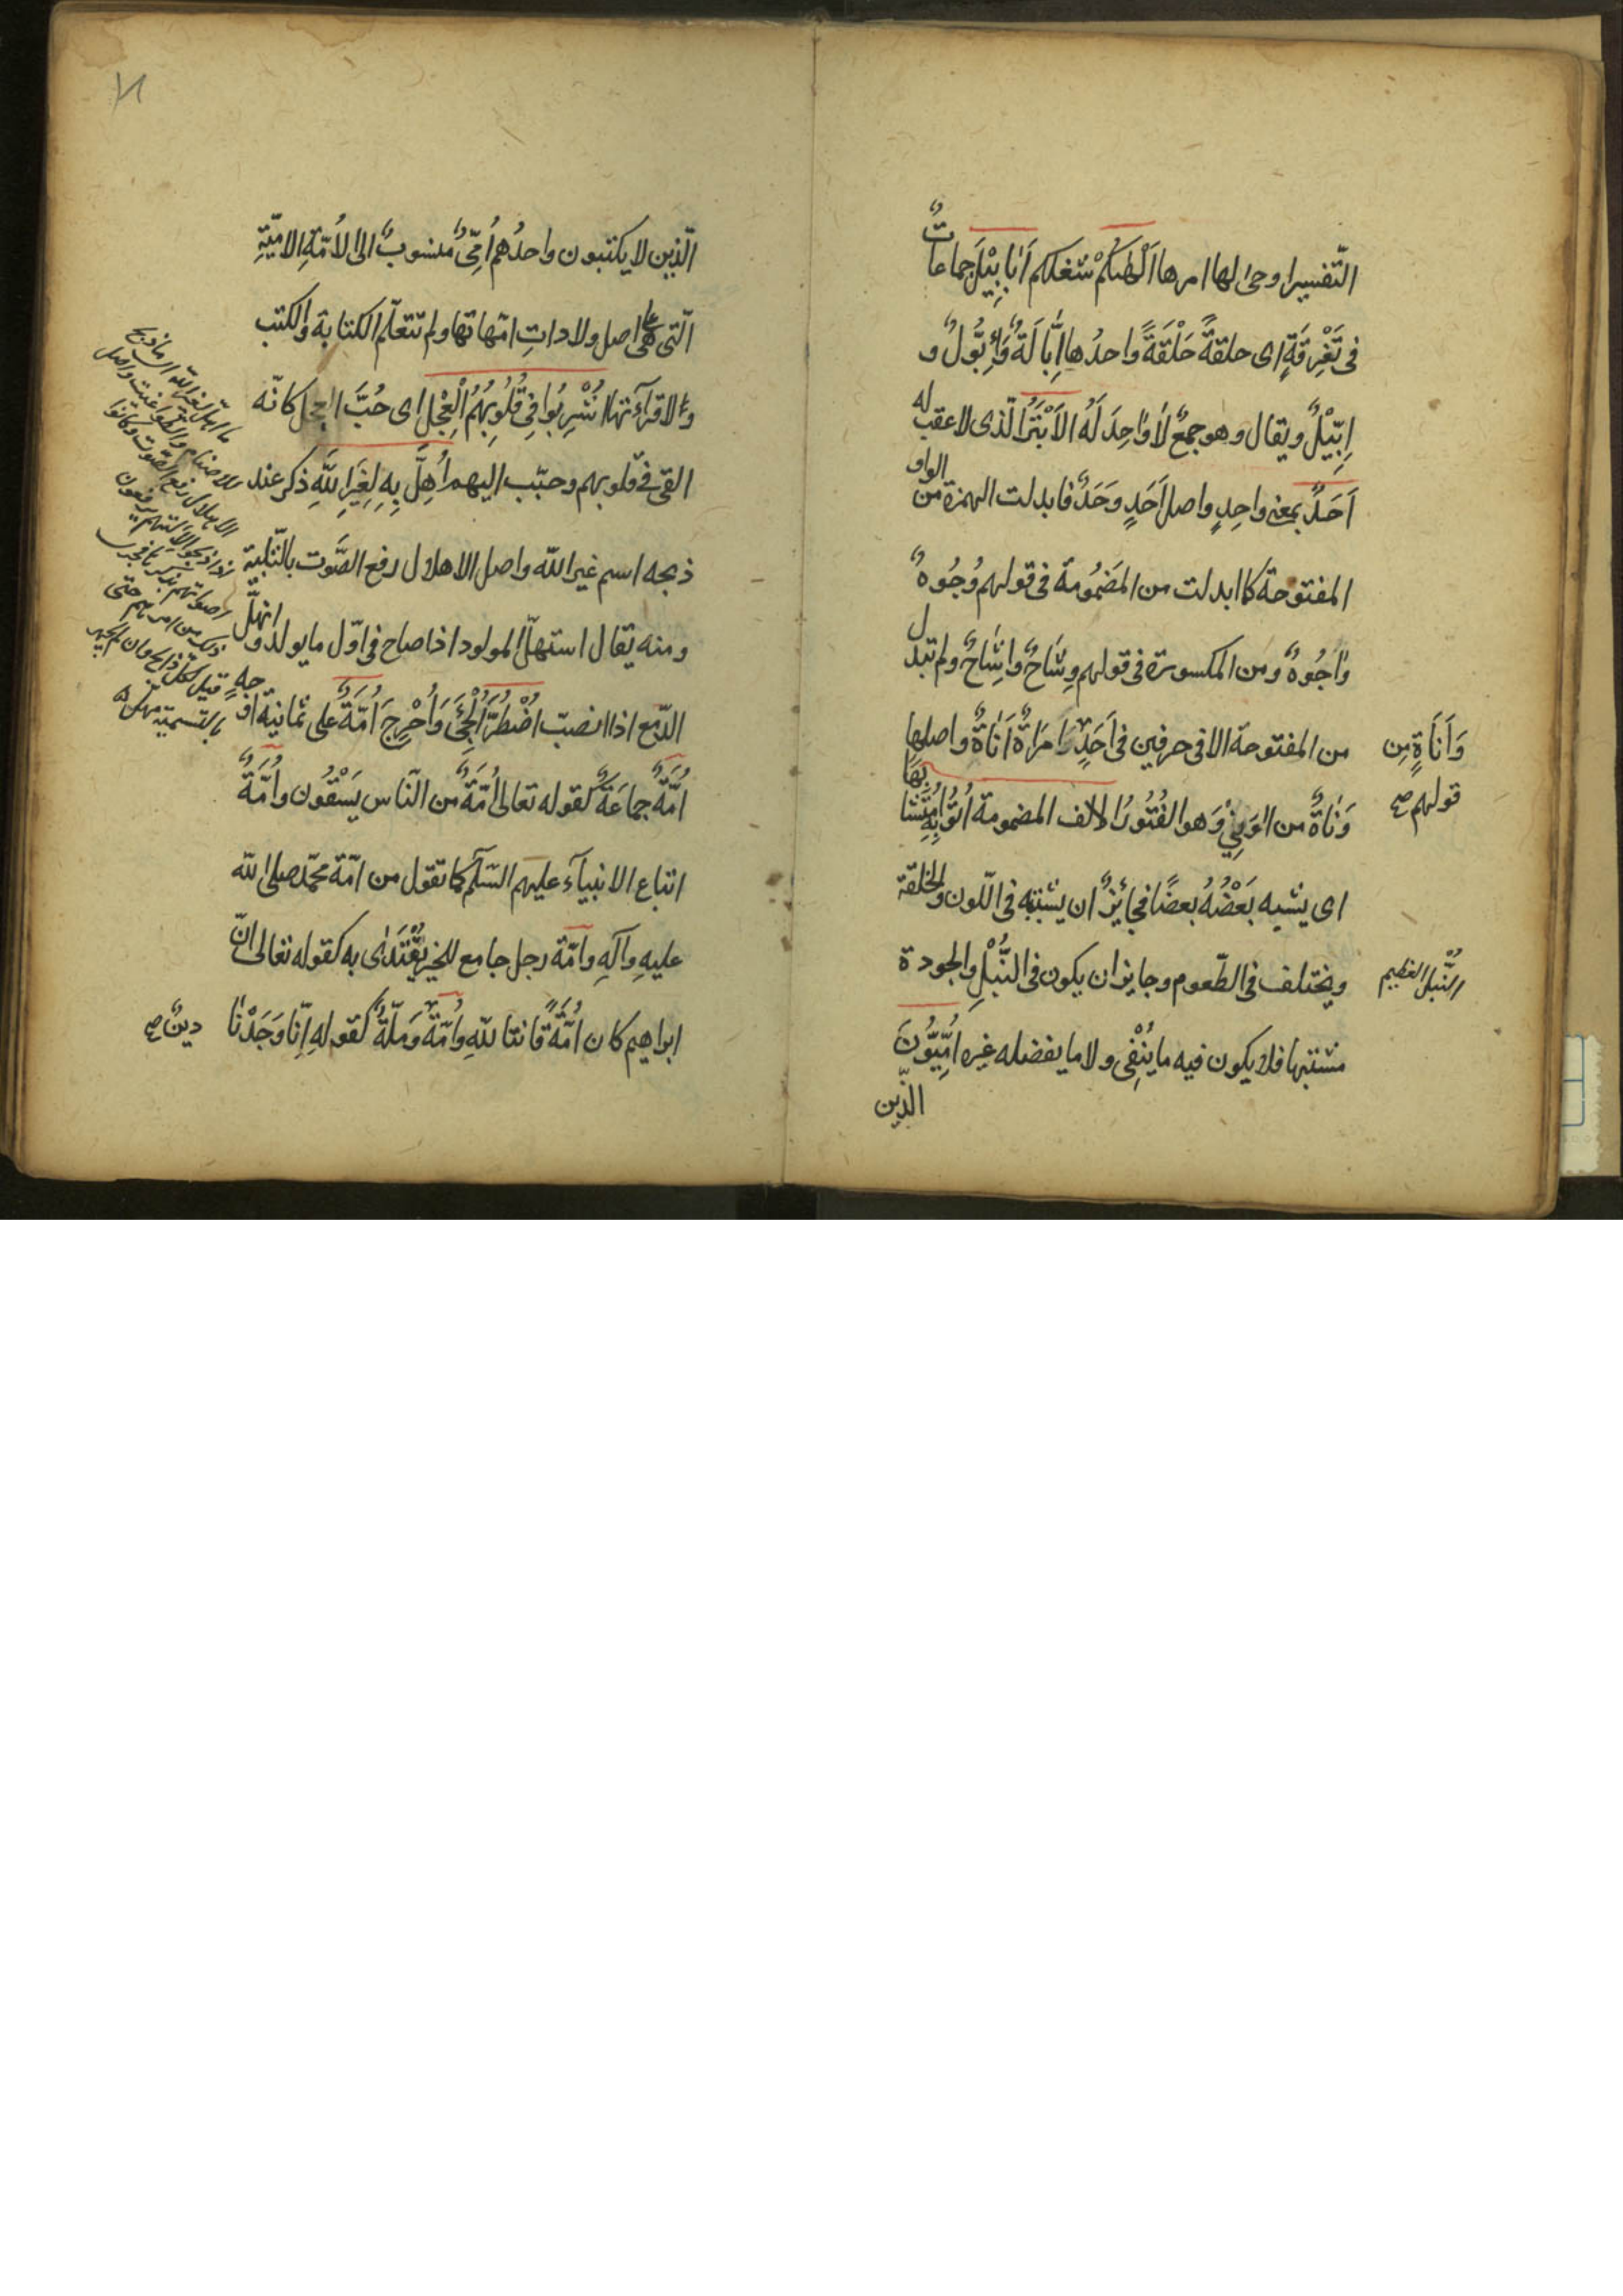 التّفسير اوحى لها امرها اَلْهٰىكُمْ شغلكم اَبَابِيْلَ جماعاتٌ
فى تَفْرِقَةٍ اى حلقةً حَلْقَةً واحدُها اِبَّالَةٌ وَاِبُّوْلٌ و
اِبِّيْلٌ ويقال وهو جمعٌ لَا وَاحِدَ لَهُ الاَبْتَرُ الّذى لا عقب له
اَحَدٌ بمعنى واحِدٍ واصل اَحَدٍ وَحَدٌ فابدلت الهمزة من الواو
المفتوحة كما ابدلت من المضمُومة فى قولهم وُجُوهٌ
وَاُجُوهٌ ومن المكسورة فى قولهم وِشَاحٌ واِشَاحٌ ولم تبدل
من المفتوحة الا فى حرفين فى اَحَدٍ وَامْرَاةٌ اَنَاةٌ واصلها
وَاَنَاةٍ مِن
قولهم صح
وَنَاةٌ من الوَنِىْ وَهو الفُتُورُ الالف المضمومة اُتُوْا بِهِ مُتَشَابِهًا
اى يشبه بَعْضُهُ بعضًا فجائزٌ ان يشتبه فى اللّون والخلقة
ويختلف فى الطّعوم وجايز ان يكون فى النُّبْلِ والجودة
النُّبْلُ العظيم
مشتبها فلا يكون فيه ما يُنْفِى ولا ما يفضله غيره اُمِّيُّوْنَ
الّذين
الّذين لا يكتبون واحدُهم اُمِّىٌّ منسوبٌ الى الاُمّةِ الامّيّةِ
الّتى هى على اصل ولاداتِ امّهاتها ولم تتعلّم الكتابة والكتب
ولا قرآءتها اُشْرِبُوا فِى قُلُوبِهُمُ الْعِجْلَ اى حُبَّ العجل كانّه
القى فى قلوبهم وحبّب اليهم اُهِلَّ بِهِ لِغَيْرِ اللّٰهِ ذكر عند
ذبحه اسم غير اللّه واصل الاهلال رفع الصَّوت بالتّلبية
ومنه يقال استهلّ المولود اذا صاح فى اوّل ما يولد و انهلّ
الدّمع اذا انصبّ اضْطُرَّ اُلْجِئَ وَاُحْرِجَ اُمّةٌ على ثمانية اوجه
اُمّةٌ جماعَةٌ كقوله تعالى اُمّةً من النّاس يَسْقُون واُمّةٌ
اتباع الانبيآء عليهم السّلم كما تقول من امّة محمّد صلى اللّه
عليهِ وآلهِ وامّة رجل جامع للخير يُقْتَدٰى به كقوله تعالى انّ
ابراهيم كان اُمّةً قانتا للّهِ واُمّةٌ وَملّةٌ كقوله اِنّا وَجَدْنَا
دينٌ صح
ما اهلّ لغير اللّه اى ما ذبح
للاصنام والطواغيت واصل
الاهلال رفع الصّوت وكانوا
اذا ذبحوا لآلهتهم يرفعون
اصواتهم بذكرها فجرى
ذلك من امرهم حتى
قيل لكلّ ذابح وان لم يجهر
بالتسمية مهلّ